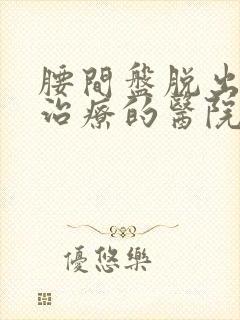 腰間盤脱出
治療的醫院
優悠樂